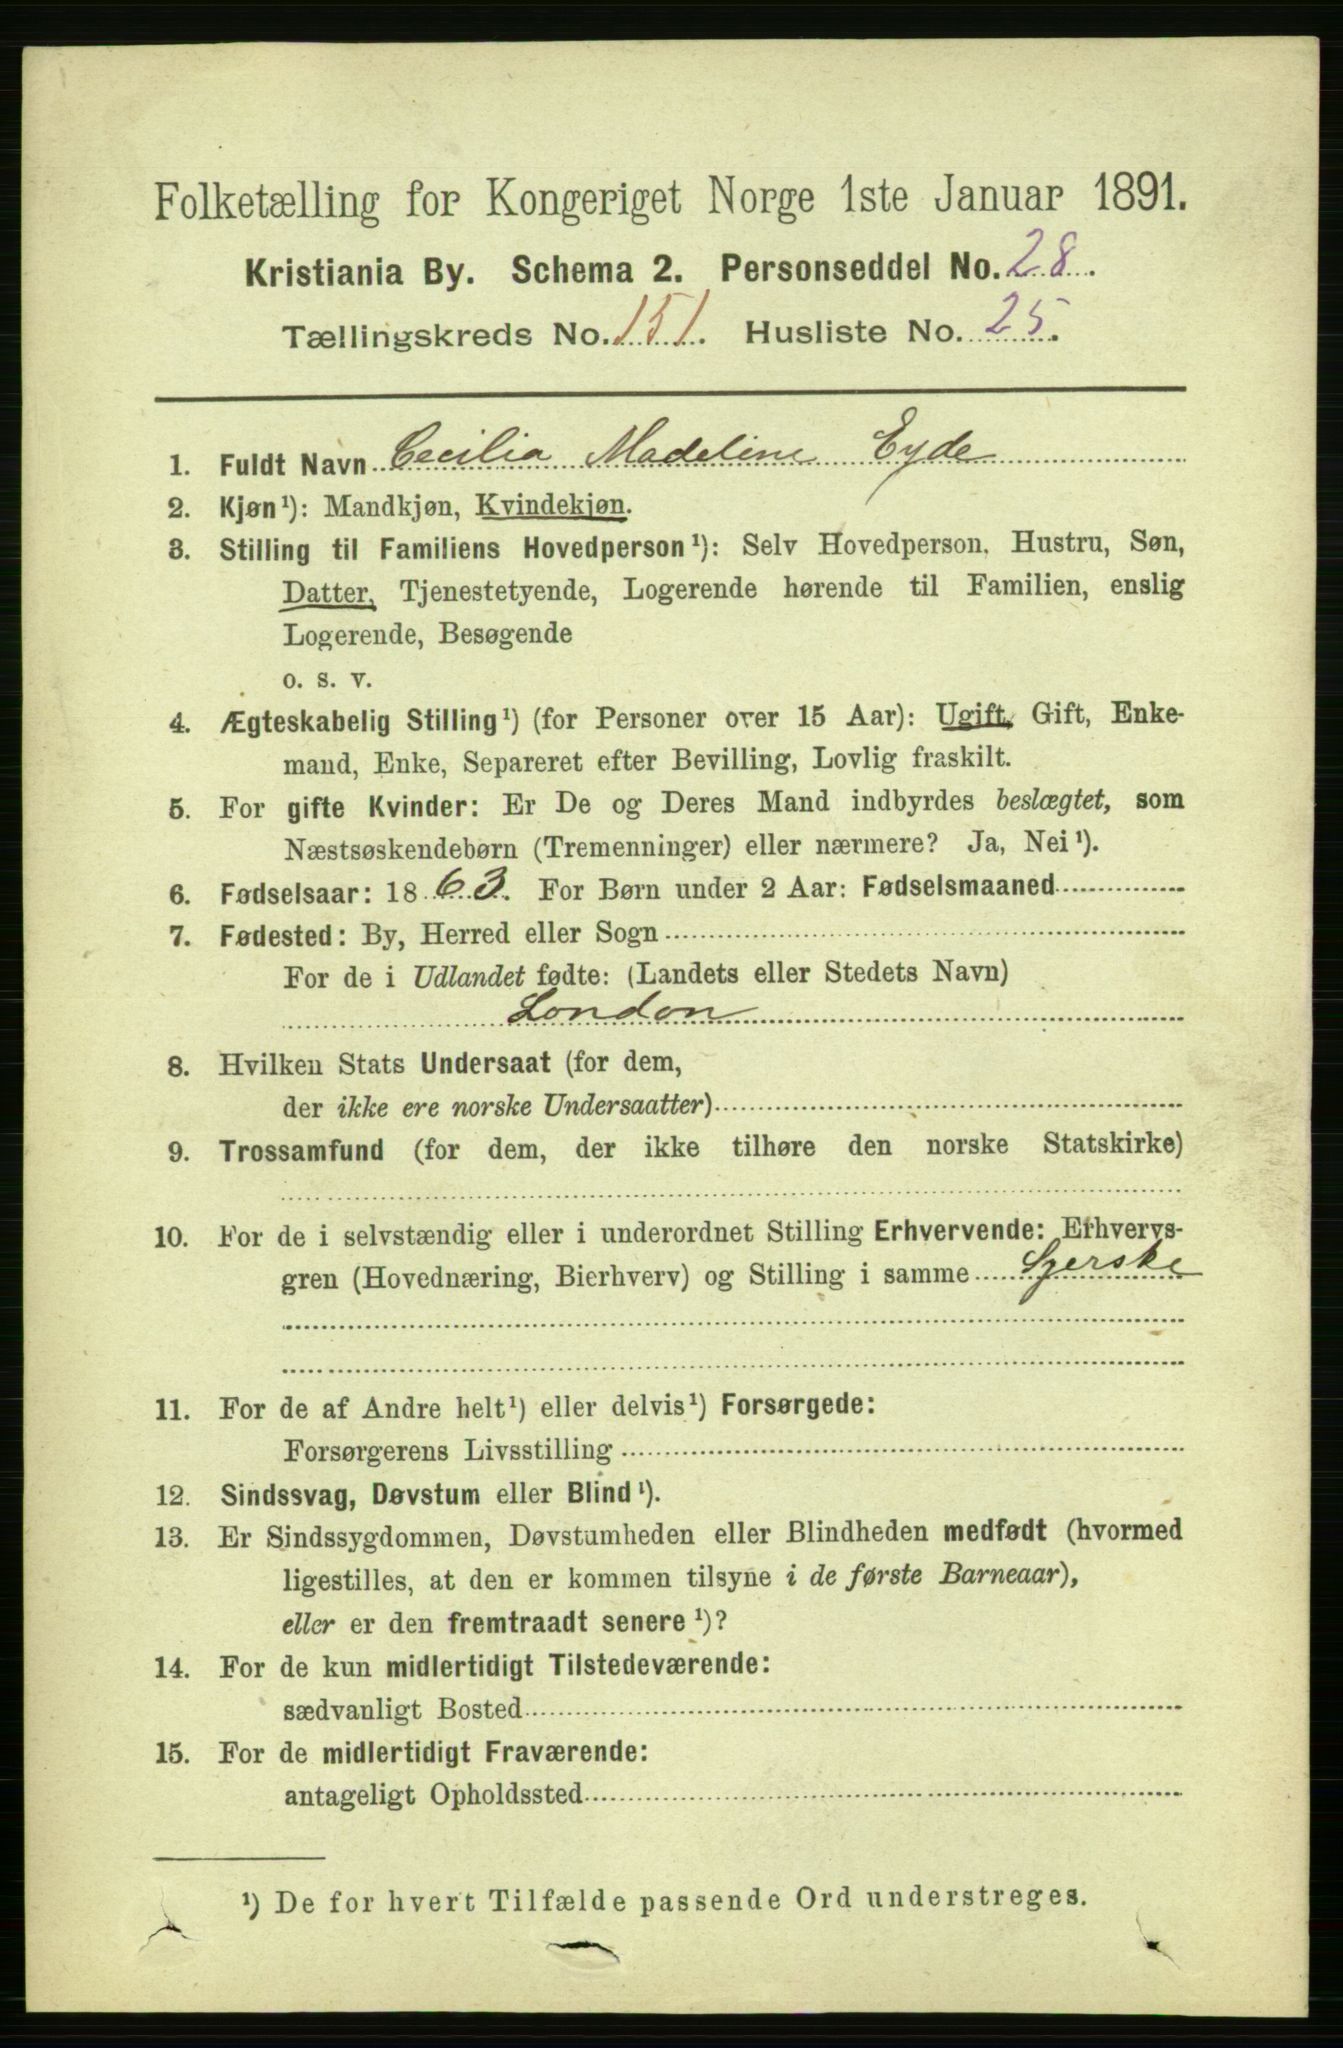 Folketælling for Kongeriget Norge 1ste Januar 1891.
Kristiania By. Schema 2. Personseddel No. 28.
Tællingskreds No. 151. Husliste No. 25.
1. Fuldt Navn Cecilia Madeline Eyde
2. Kjøn¹): Mandkjøn, Kvindekjøn.
3. Stilling til Familiens Hovedperson¹): Selv Hovedperson, Hustru, Søn,
Datter, Tjenestetyende, Logerende hørende til Familien, enslig
Logerende, Besøgende
o. s. v.
4. Ægteskabelig Stilling¹) (for Personer over 15 Aar): Ugift, Gift, Enke-
mand, Enke, Separeret efter Bevilling, Lovlig fraskilt.
5. For gifte Kvinder: Er De og Deres Mand indbyrdes beslægtet, som
Næstsøskendebørn (Tremenninger) eller nærmere? Ja, Nei¹).
6. Fødselsaar: 1863. For Børn under 2 Aar: Fødselsmaaned
7. Fødested: By, Herred eller Sogn
For de i Udlandet fødte: (Landets eller Stedets Navn)
London
8. Hvilken Stats Undersaat (for dem,
der ikke ere norske Undersaatter)
9. Trossamfund (for dem, der ikke tilhøre den norske Statskirke)
10. For de i selvstændig eller i underordnet Stilling Erhvervende: Erhvervs-
gren (Hovednæring, Bierhverv) og Stilling i samme Syerske
11. For de af Andre helt¹) eller delvis¹) Forsørgede:
Forsørgerens Livsstilling
12. Sindssvag, Døvstum eller Blind¹).
13. Er Sindssygdommen, Døvstumheden eller Blindheden medfødt (hvormed
ligestilles, at den er kommen tilsyne i de første Barneaar),
eller er den fremtraadt senere¹)?
14. For de kun midlertidigt Tilstedeværende:
sædvanligt Bosted
15. For de midlertidigt Fraværende:
antageligt Opholdssted
¹) De for hvert Tilfælde passende Ord understreges.